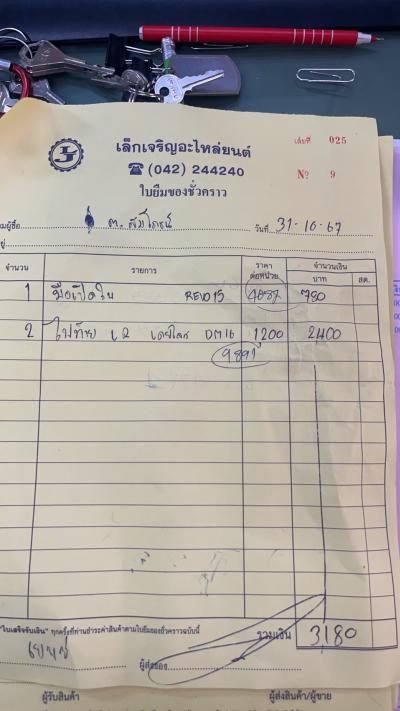 เล็กเจริญอะไหล่ยนต์
เล่มที่ 025
☎ (042) 244240
Nº 9
ใบยืมของชั่วคราว
มผู้ซื้อ
วันที่ 31-10-67
อยู่
จำนวน รายการ ราคา ต่อหน่วย จำนวนเงิน
บาท สต.
1 มือเปิดใน REVO15 4687 780
2 ไฟท้าย DM16 1200 2400
9891
"ใบเสร็จรับเงิน" ทุกครั้งที่ท่านชำระค่าสินค้าตามใบยืมของชั่วคราวฉบับนี้
รวมเงิน 3180
ผู้ส่งของ
ผู้รับสินค้า ผู้ส่งสินค้า/ผู้ขาย